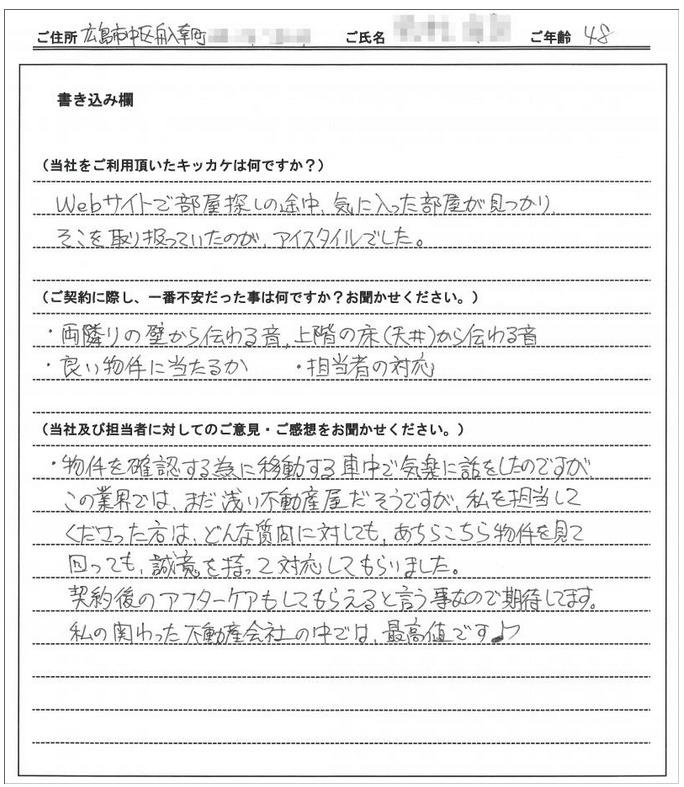 ご住所 広島市中区舟入幸町 ご氏名 ご年齢 48
書き込み欄
(当社をご利用頂いたキッカケは何ですか?)
Webサイトで部屋探しの途中、気に入った部屋が見つかり、
そこを取り扱っていたのが、アイスタイルでした。
(ご契約に際し、一番不安だった事は何ですか?お聞かせください。)
・両隣りの壁から伝わる音、上階の床(天井)から伝わる音
・良い物件に当たるか ・担当者の対応
(当社及び担当者に対してのご意見・ご感想をお聞かせください。)
・物件を確認する為に移動する車中で気楽に話をしたのですが、
この業界では、まだ浅い不動産屋だそうですが、私を担当して
くださった方は、どんな質問に対しても、あちらこちら物件を見て
回っても、誠意を持って対応してもらいました。
契約後のアフターケアもしてもらえると言う事なので期待してます。
私の関わった不動産会社の中では、最高値です♪